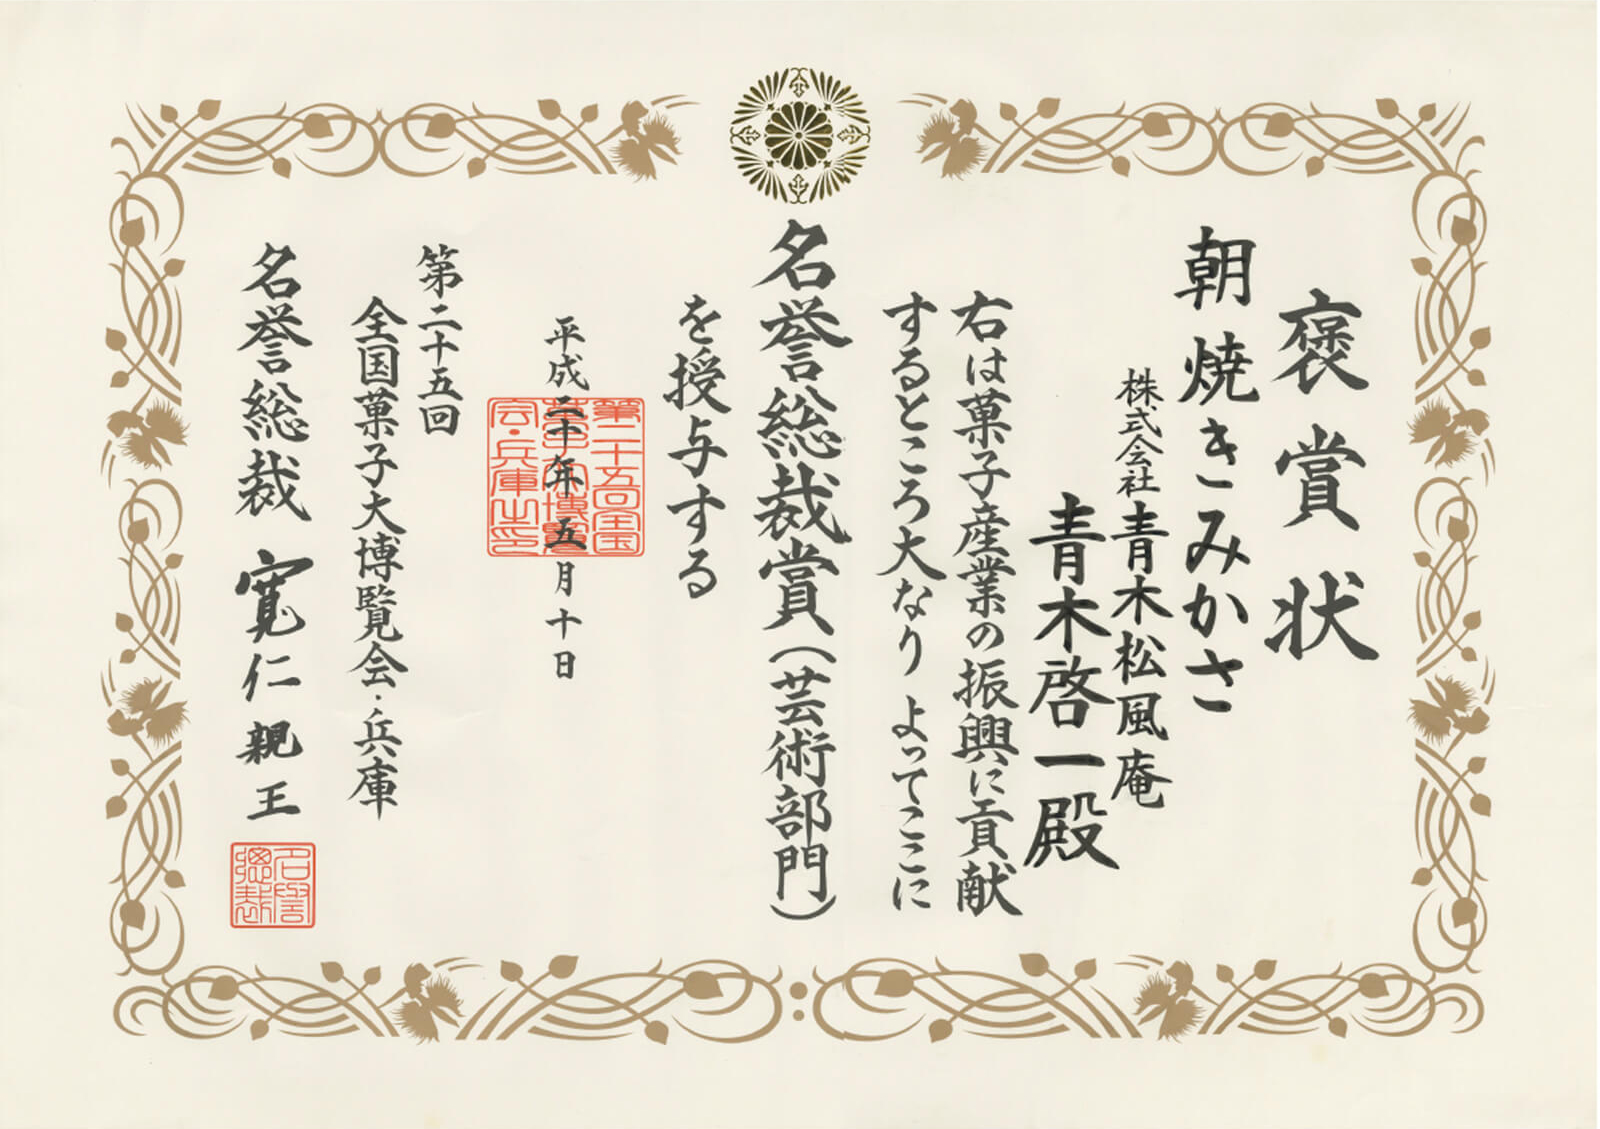 褒賞状
朝焼きみかさ
株式会社青木松風庵
青木啓一殿
右は菓子産業の振興に貢献
するところ大なり よってここに
名誉総裁賞(芸術部門)
を授与する
平成二十年五月十日
第二十五回全国
菓子大博覧
会・兵庫之印
第二十五回
全国菓子大博覧会・兵庫
名誉総裁 寛仁親王
名誉
総裁